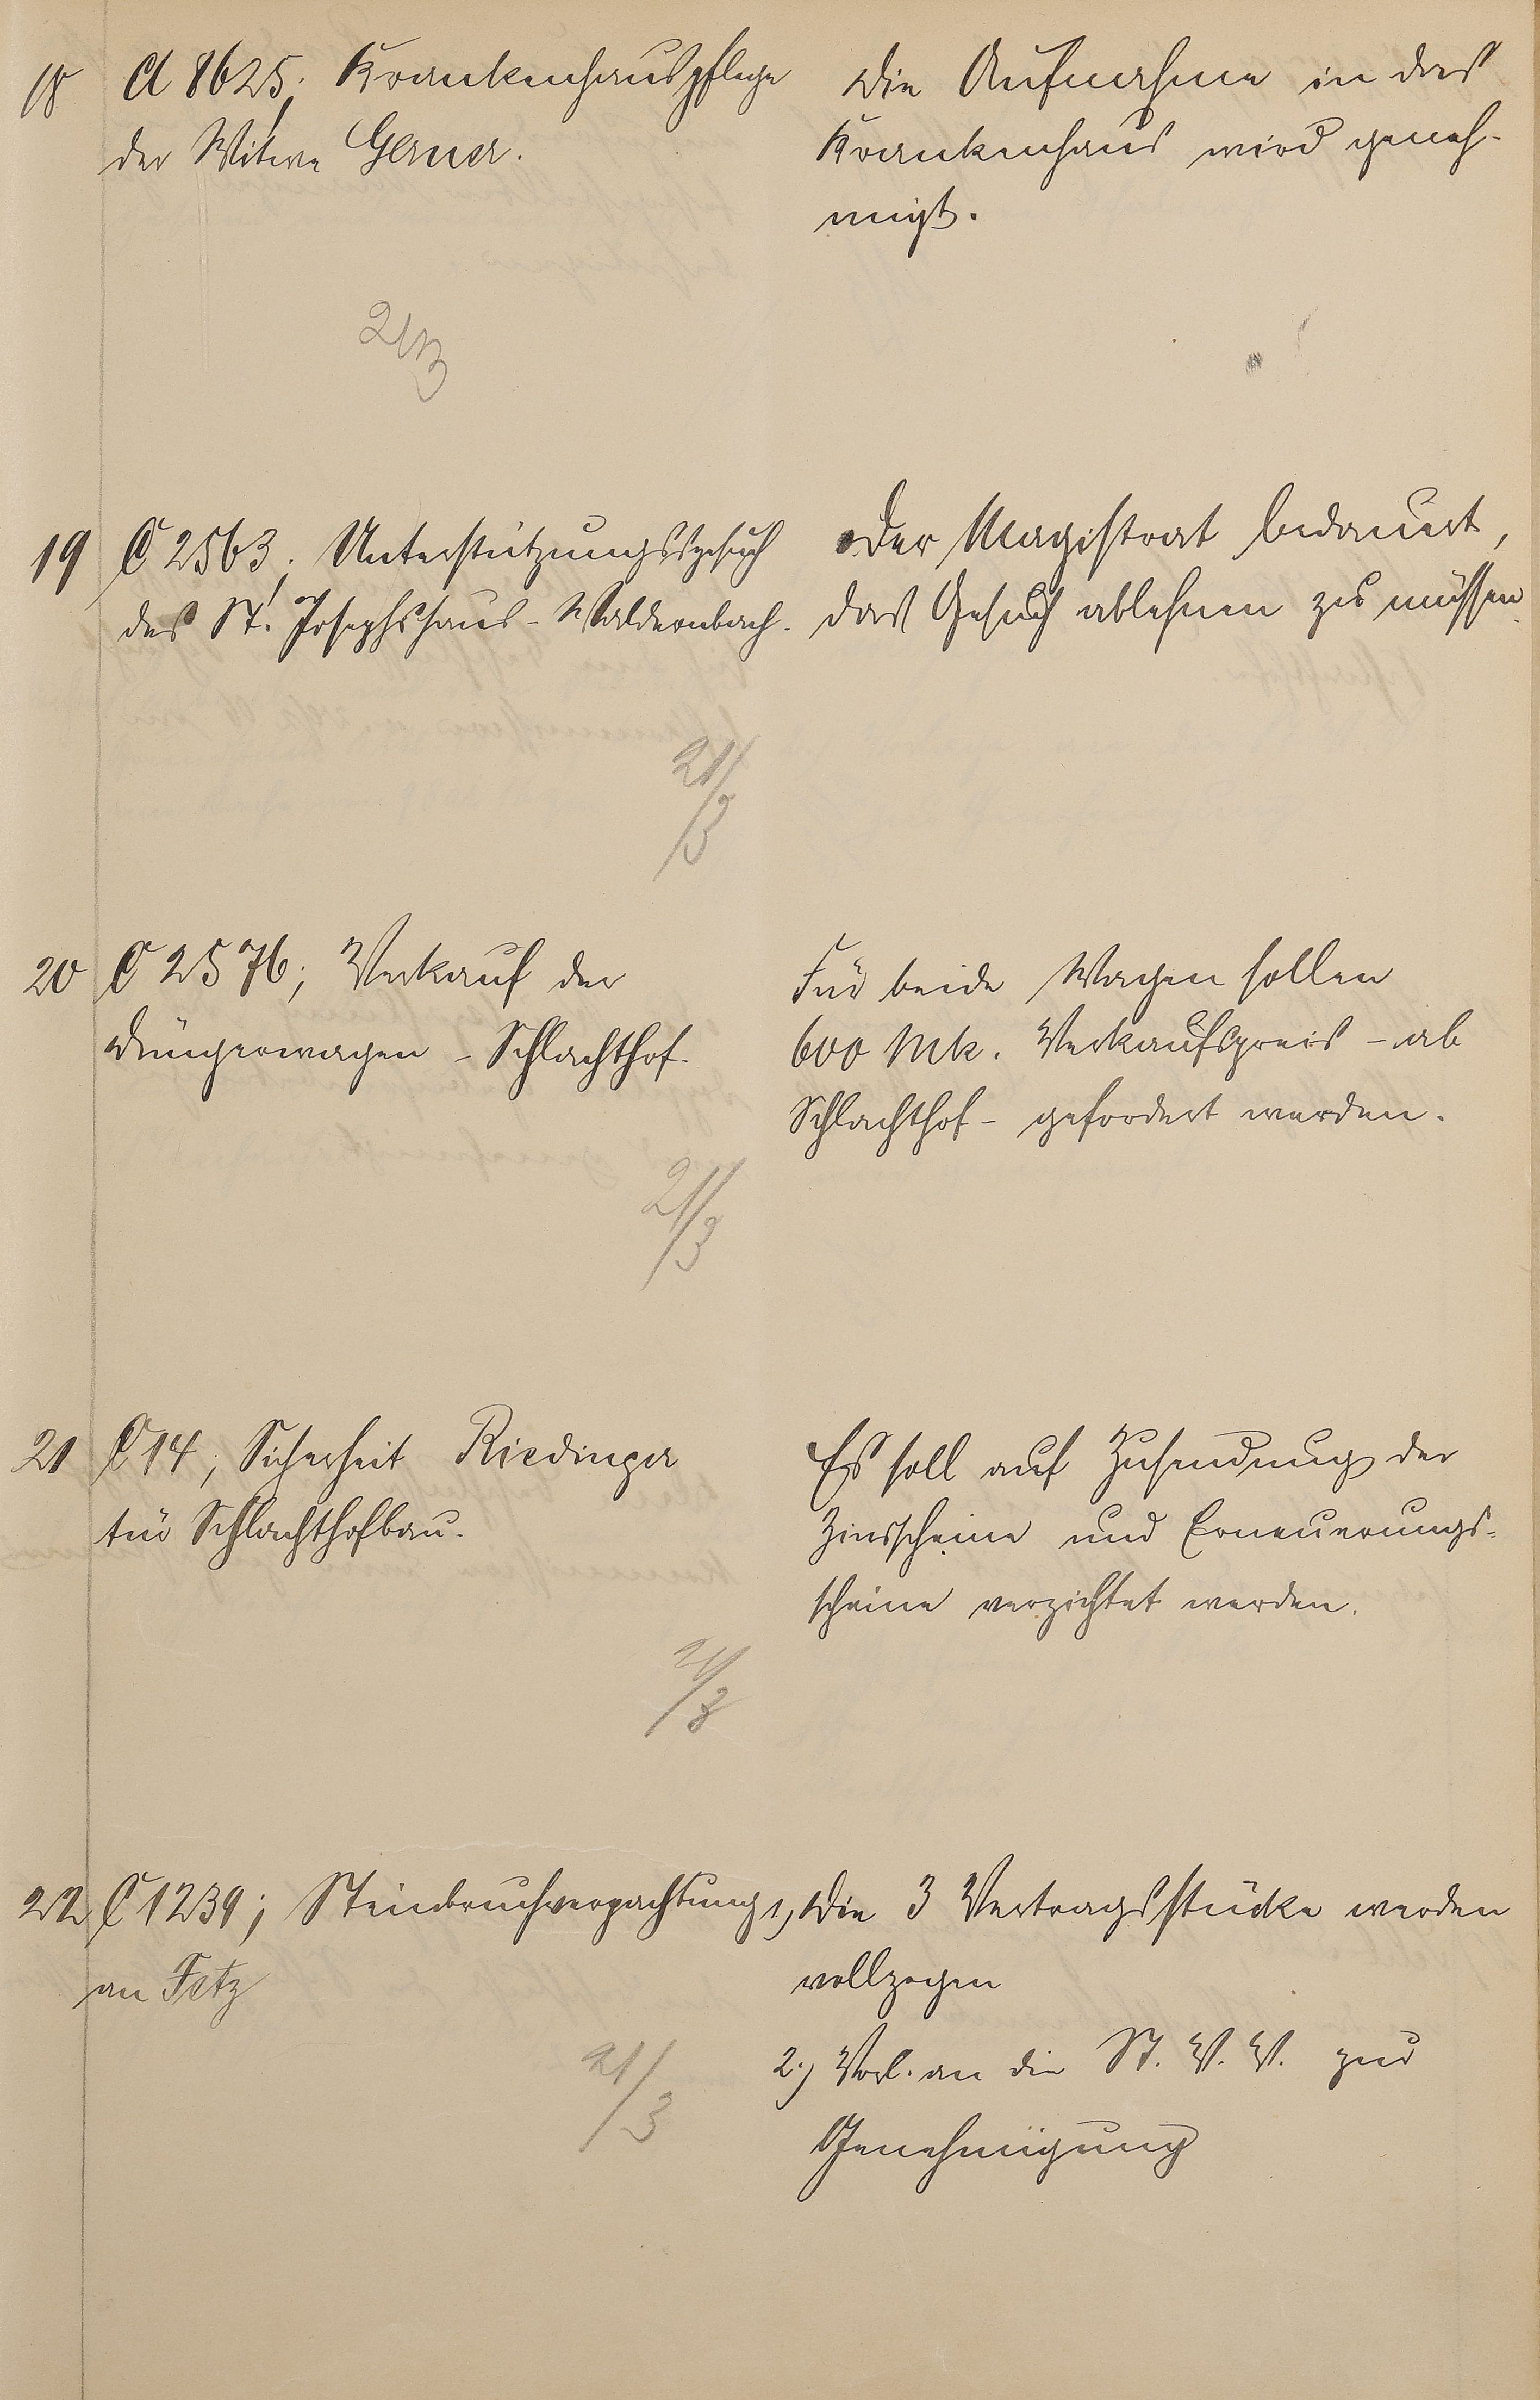 18
A 8625; Krankenhauspflege
der Witwe Gerner.
Die Aufnahme in das
Krankenhaus wird geneh-
migt.
21/3
19
C 2563; Unterstützungsgesuch
des St. Josephshaus - Waldernbach.
Der Magistrat bedauert,
das Gesuch ablehnen zu müssen.
21/3
20
C 2576; Verkauf der
Düngerwagen - Schlachthof.
Für beide Wagen sollen
600 Mk. Verkaufspreis - ab
Schlachthof - gefordert werden.
21/3
21
C 14; Sicherheit Riedinger
für Schlachthofbau.
Es soll auf Zusendung der
Zinsscheine und Erneuerungs-
scheine verzichtet werden.
21/3
22
C 1239; Steinbruchverpachtung
an Fetz
1, Die 3 Vertragsstücke werden
vollzogen
2.) Vorl. an die St. V. V. zur
Genehmigung
21/3